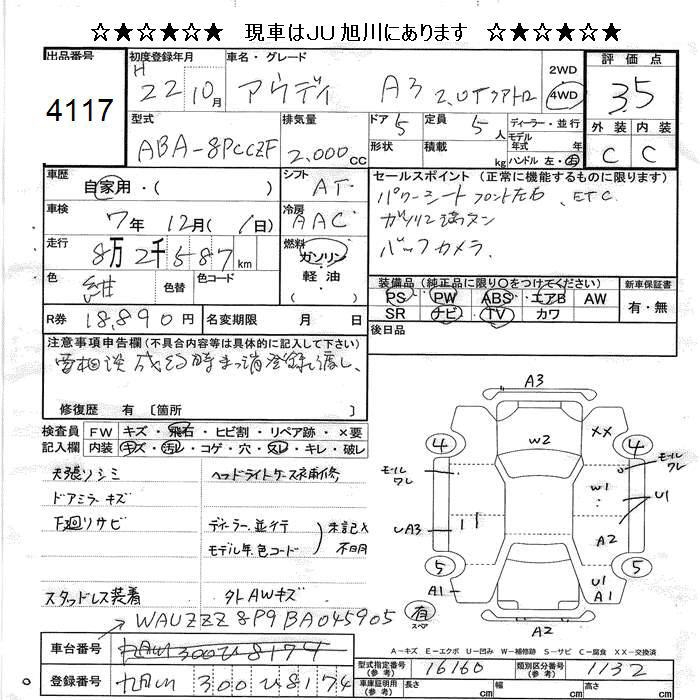 ☆★☆★☆★ 現車はJU旭川にあります ☆★☆★☆★
出品番号 4117
初度登録年月 H 22 10月
車名・グレード アウディ A3 2.0Tクアトロ
2WD 4WD
評価点 3.5
外装 内装
C C
型式 ABA-8PCCZF
排気量 2,000cc
ドア 5
定員 5人
ディーラー・並行
形状
積載 kg
モデル年式 年
ハンドル 左・右
車歴 自家用・( )
シフト AT
セールスポイント (正常に機能するものに限ります)
パワーシート フロント左右 ETC
車検 7年 12月 ( 1日)
冷房 AAC
ガソリン満タン
走行 8万2千587km
燃料 ガソリン・軽油・( )
バックカメラ
色 紺 色替 色コード
装備品 (純正品に限り○をつけてください) 新車保証書
PS PW ABS エアB AW 有・無
R券 18,890円 名変期限 月 日
SR ナビ TV カワ
後日品
注意事項申告欄 (不具合内容等は具体的に記入して下さい)
修復歴 有 [箇所 ]
検査員記入欄
FW キズ・飛石・ヒビ割・リペア跡・×要
内装 キズ・汚レ・コゲ・穴・スレ・キレ・破レ
天張リシミ ヘッドライトケース補修
ドアミラーキズ
下廻リサビ ディーラー,並行 未記入
モデル年,色コード 不明
スタッドレス装着 外AWキズ
WAUZZZ8P9BA045905
車台番号
登録番号 旭川 300 ひ 8174
A3
W2
XX
4 4
モールワレ モールワレ
W1
U1
UA3
A2
5 5
A1
U1
A1
有
スペア
A2
A-キズ E-エクボ U-凹み W-補修跡 S-サビ C-腐食 XX-交換済
型式指定番号(参考) 16160 類別区分番号(参考) 1132
車庫証明用(参考) 長さ cm 幅 cm 高さ cm